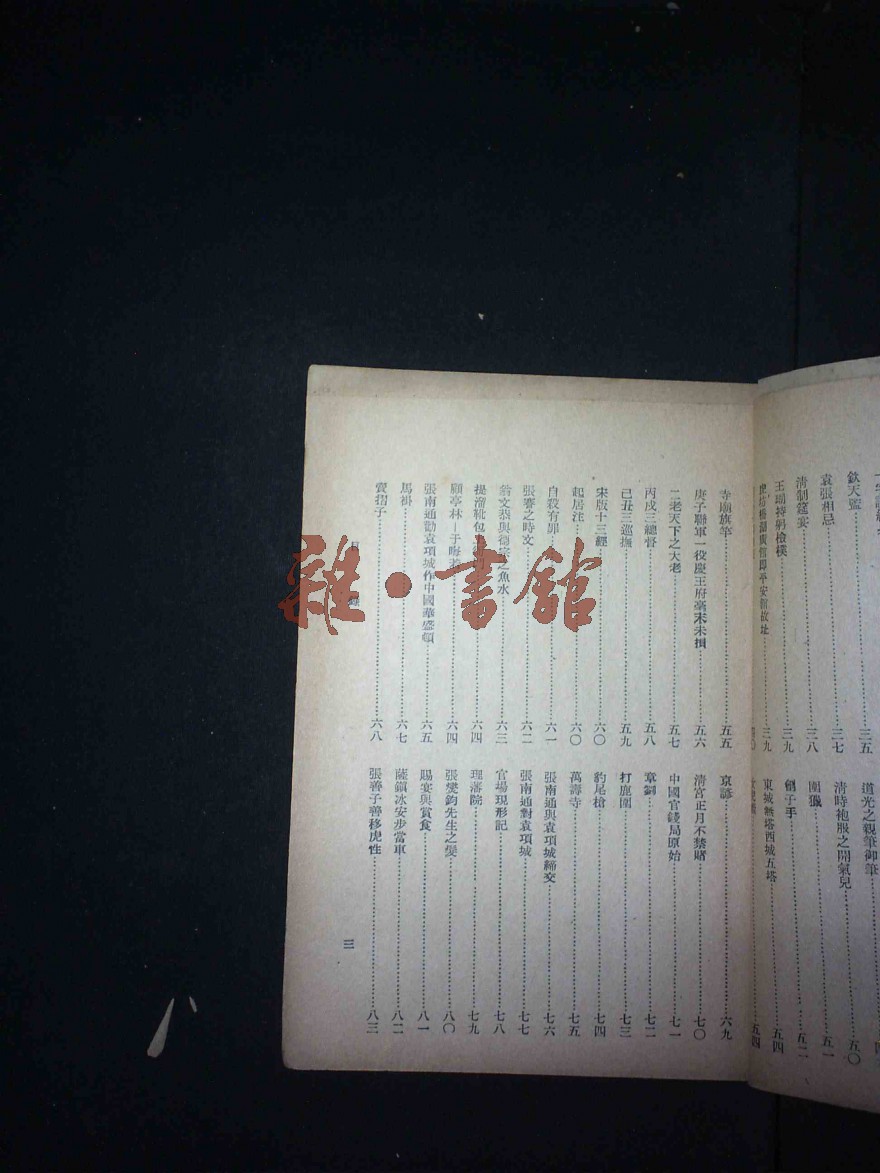 欽天監……三五
袁張相忌……三七
清制筵宴……三八
三九
三九
道光之親筆御筆
清時袍服之開氣兒……五〇
圍獵……五一
劊子手……五二
東城無塔西城五塔……五四
五四
寺廟旗竿……五五
庚子聯軍一役慶王府毫末未損……五六
二老天下之大老……五七
丙戌三總督……五八
己丑三巡撫……五九
宋版十三經……六〇
起居注……六〇
自殺有罪……六一
張謇之時文……六二
翁文恭與德宗之魚水……六三
提溜靴包……六四
顧亭林—于晦若……六四
張南通勸袁項城作中國華盛頓……六五
馬褂……六七
賣摺子……六八
京諺……六九
清宮正月不禁賭……七〇
中國官錢局原始……七一
章銅……七二
打鹿圍……七三
豹尾槍……七四
萬壽寺……七五
張南通與袁項城締交……七六
張南通對袁項城……七七
官場現形記……七八
理藩院……七九
張燮鈞先生之髮……八〇
賜宴與賞食……八一
薩鎮冰安步當車……八二
張善子善移虎性……八三
目錄
三
雜·書館